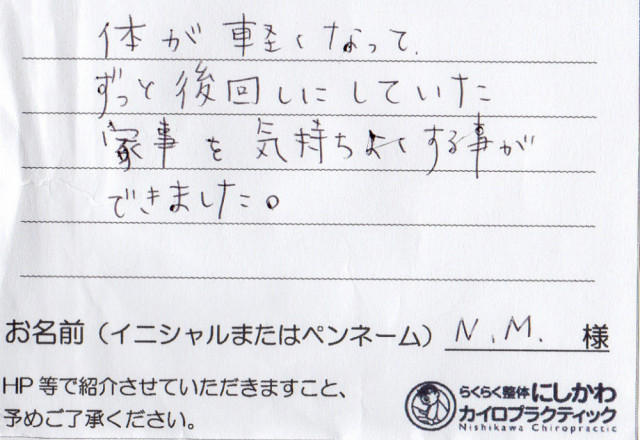 体が軽くなって、
ずっと後回しにしていた
家事を気持ちよくする事が
できました。
お名前（イニシャルまたはペンネーム） N.M. 様
HP等で紹介させていただきますこと、
予めご了承ください。
らくらく整体 にしかわ
カイロプラクティック
Nishikawa Chiropractic